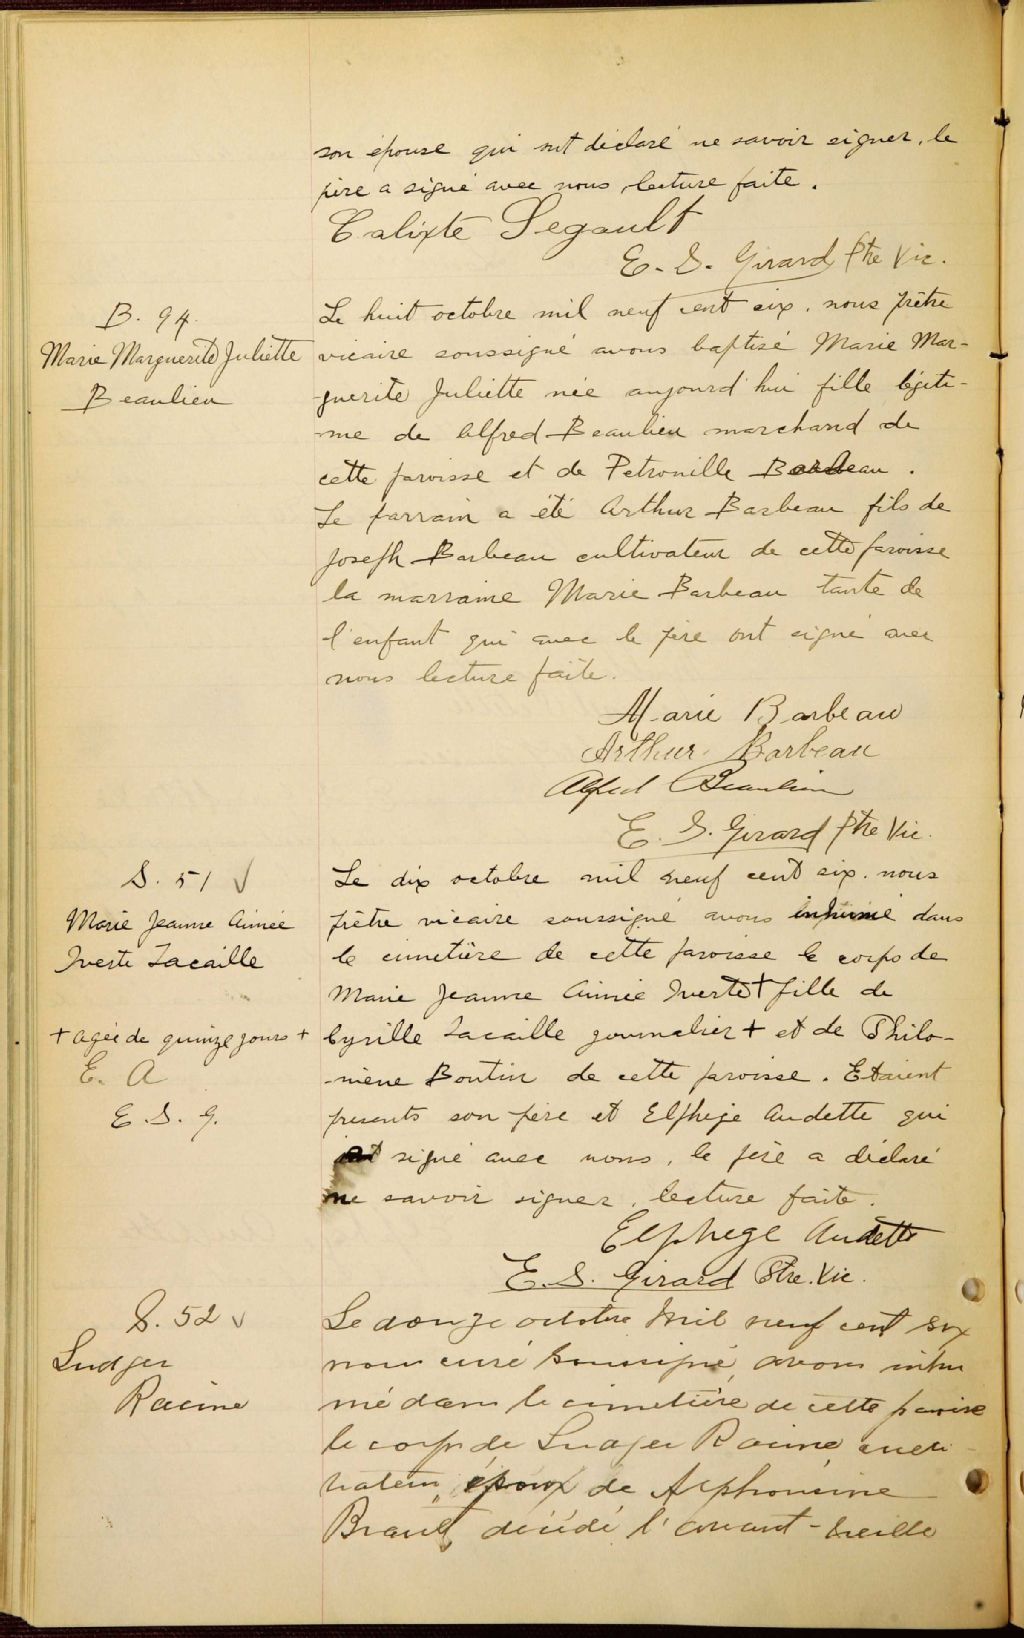 son épouse qui ont déclaré ne savoir signer, le
père a signé avec nous, lecture faite.
Calixte Segault
E. S. Girard Ptre Vic.
B. 94.
Marie Marguerite Juliette
Beaulieu
Le huit octobre mil neuf cent six, nous prêtre
vicaire soussigné avons baptisé Marie Mar-
-guerite Juliette née aujourd'hui fille légiti-
-me de Alfred Beaulieu marchand de
cette paroisse et de Petronille Barbeau.
Le parrain a été Arthur Barbeau fils de
Joseph Barbeau cultivateur de cette paroisse
la marraine Marie Barbeau tante de
l'enfant qui avec le père ont signé avec
nous lecture faite.
Marie Barbeau
Arthur Barbeau
Alfred Beaulieu
E. S. Girard Ptre Vic.
S. 51 √
Marie Jeanne Aimée
Iverte Lacaille
+ agée de quinze jours +
E. A
E. S. G.
Le dix octobre mil neuf cent six, nous
prêtre vicaire soussigné avons inhumé dans
le cimetière de cette paroisse le corps de
Marie Jeanne Aimée Iverte + fille de
Cyrille Lacaille journalier + et de Philo-
-mène Boutin de cette paroisse. Etaient
presents son père et Elphege Audette qui
signé avec nous, le père a déclaré
ne savoir signer, lecture faite.
Elphege Audette
E. S. Girard Ptre. Vic.
S. 52 √
Ludger
Racine
Le douze octobre mil neuf cent six
nous curé soussigné, avons inhu
mé dans le cimetière de cette paroisse
le corps de Ludger Racine, culti-
vateur, époux de Alphonsine
Brault décédé l'avant-veille